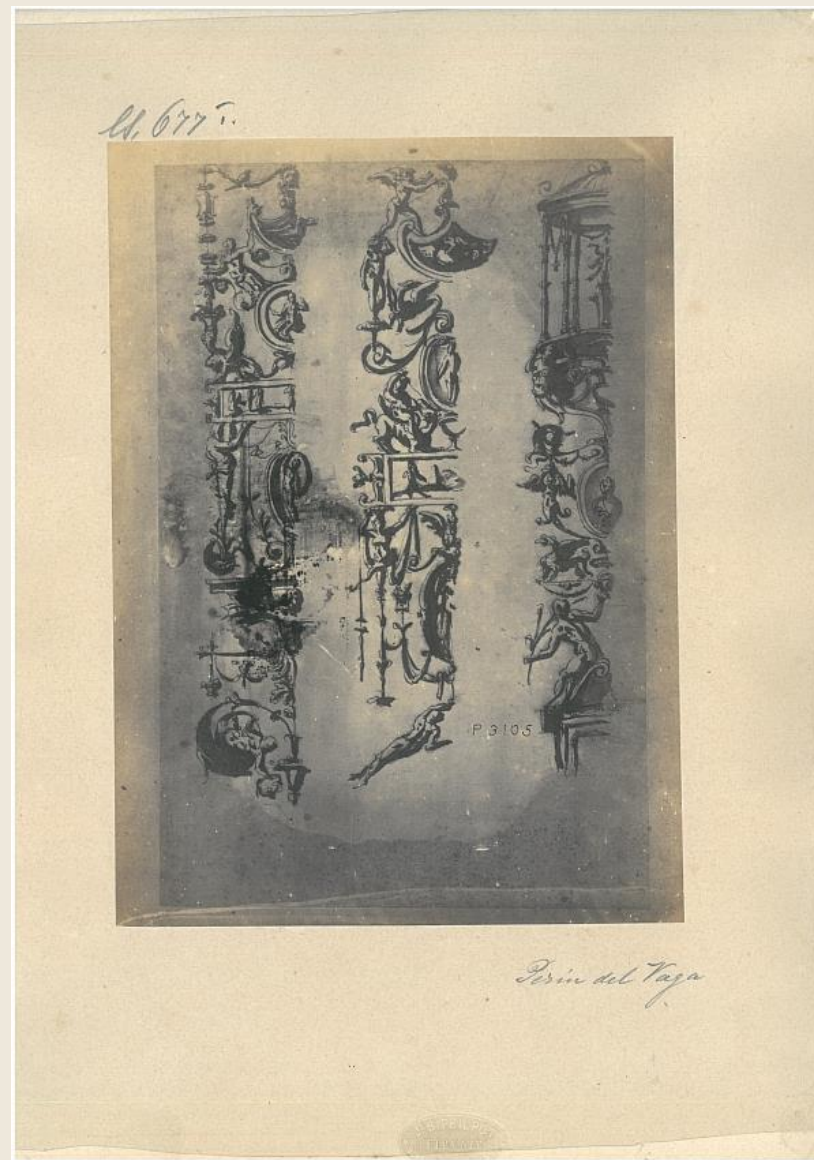 677 I.
P 3105
Perin del Vaga